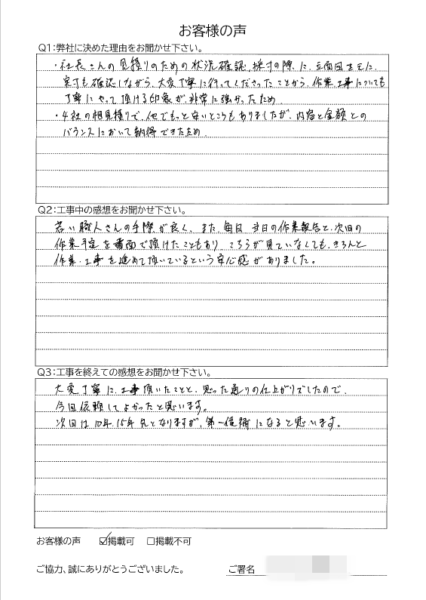 お客様の声
Q1:弊社に決めた理由をお聞かせ下さい。
・社長さんの見積りのための状況確認、採寸の際に、立面図を元に、
実寸も確認しながら、大変丁寧に行ってくださったことから、作業、工事についても
丁寧にやって頂ける印象が非常に強かったため
・4社の相見積りで、他でもっと安いところもありましたが、内容と金額との
バランスにおいて納得できたため。
Q2:工事中の感想をお聞かせ下さい。
若い職人さんの手際が良く、また、毎日、当日の作業報告と、次回の
作業予定を書面で頂けたこともあり、こちらが見ていなくても、きちんと
作業、工事を進めて頂いているという安心感がありました。
Q3:工事を終えての感想をお聞かせ下さい。
大変丁寧に、工事頂いたことと、思った通りの仕上がりでしたので、
今回依頼してよかったと思います。
次回は10年、15年先となりますが、第一候補になると思います。
お客様の声 ☑掲載可 ☐掲載不可
ご協力、誠にありがとうございました。 ご署名